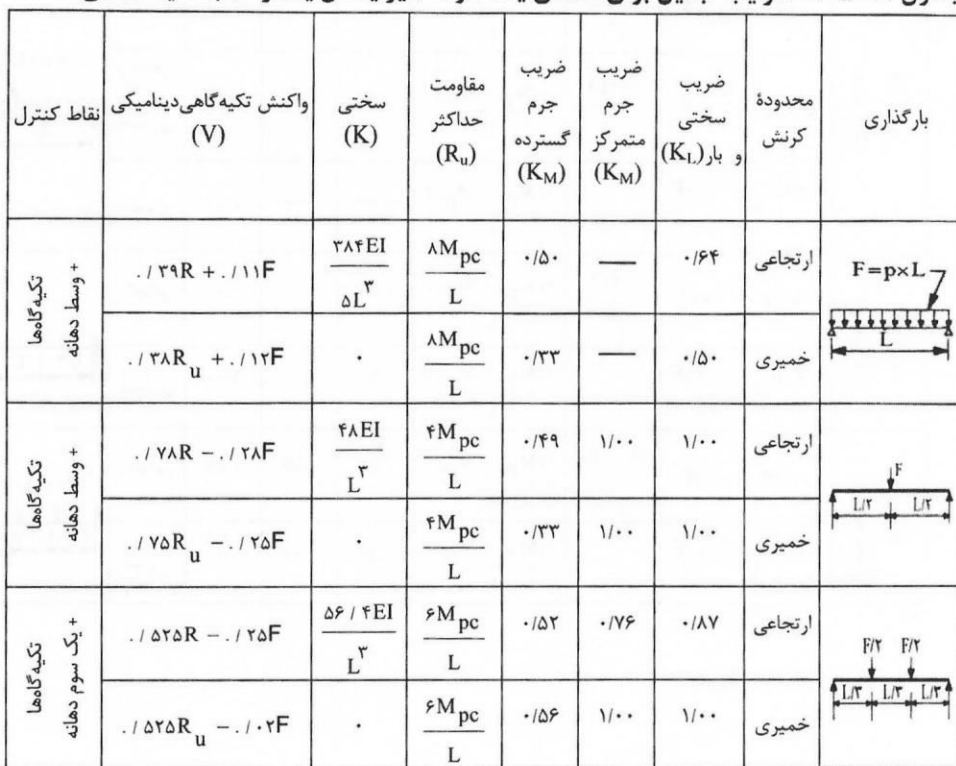 بارگذاری
محدودهٔ کرنش
ضریب سختی و بار (K_L)
ضریب جرم متمرکز (K_M)
ضریب جرم گسترده (K_M)
مقاومت حداکثر (R_u)
سختی (K)
واکنش تکیه‌گاهی‌دینامیکی (V)
نقاط کنترل
F=p×L
L
ارتجاعی
۰/۶۴
—
۰/۵۰
۸M_pc / L
۳۸۴EI / ۵L^۳
۰/۳۹R + ۰/۱۱F
+ وسط دهانه
تکیه‌گاه‌ها
خمیری
۰/۵۰
—
۰/۳۳
۸M_pc / L
۰
۰/۳۸R_u + ۰/۱۲F
F
L/۲ L/۲
ارتجاعی
۱/۰۰
۱/۰۰
۰/۴۹
۴M_pc / L
۴۸EI / L^۳
۰/۷۸R − ۰/۲۸F
+ وسط دهانه
تکیه‌گاه‌ها
خمیری
۱/۰۰
۱/۰۰
۰/۳۳
۴M_pc / L
۰
۰/۷۵R_u − ۰/۲۵F
F/۲ F/۲
L/۳ L/۳ L/۳
ارتجاعی
۰/۸۷
۰/۷۶
۰/۵۲
۶M_pc / L
۵۶/۴EI / L^۳
۰/۵۲۵R − ۰/۲۵F
+ یک سوم دهانه
تکیه‌گاه‌ها
خمیری
۱/۰۰
۱/۰۰
۰/۵۶
۶M_pc / L
۰
۰/۵۲۵R_u − ۰/۰۲F